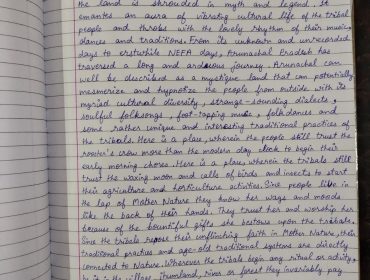 the land is shrouded in myth and legend. It
emantes an aura of vibrating cultural life of the tribal
people and throbs with the lovely rhythm of their music,
dances and traditions. From its unknown and unrecorded
days to erstwhile NEFA days, Arunachal Pradesh has
traversed a long and arduous journey. Arunachal can
well be described as a mystique land that can potentially
mesmerize and hypnotize the people from outside with its
myriad cultural diversity, strange-sounding dialects,
soulful folksongs, foot-tapping music, folkdances and
some rather unique and interesting traditional practices of
the tribals. Here is a place, wherein the people still trust the
rooster's crow more than the modern day clock to begin their
early morning chores. Here is a place, wherein the tribals still
trust the waxing moon and calls of birds and insects to start
their agriculture and horticulture activities. Since people live in
the lap of Mother Nature they know her ways and moods
like the back of their hands. They trust her and worship her
because of the bountiful gifts she bestows upon the tribals.
Since the tribals repose their unflinching faith in Mother Nature, their
traditional practices and age-old traditional systems are directly
connected to Nature. Wherever the tribals begin any ritual or activity,
be it in the village, farmland, river or forest they invariably pay